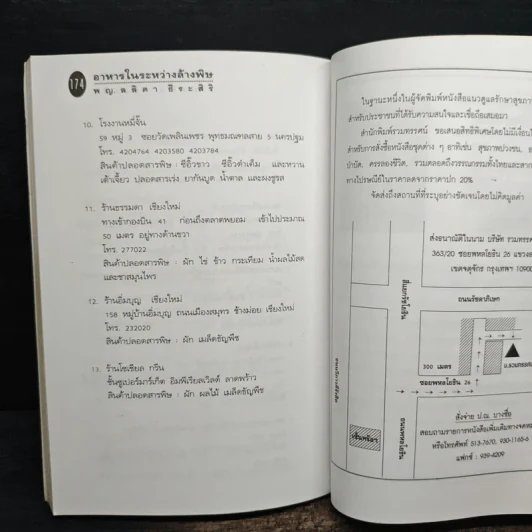 174
อาหารในระหว่างล้างพิษ
พ.ญ. ลลิตา ธีระสิริ
10. โรงงานหมี่จั๊น
59 หมู่ 3 ซอยวัดเพลินเพชร พุทธมณฑลสาย 5 นครปฐม
โทร. 4204764 4203580 4203784
สินค้าปลอดสารพิษ : ซีอิ๊วขาว ซีอิ๊วดำเค็ม และหวาน
เต้าเจี้ยว ปลอดสารเร่ง ยากันบูด น้ำตาล และผงชูรส
11. ร้านธรรมดา เชียงใหม่
ทางเข้ากองบิน 41 ก่อนถึงตลาดพยอม เข้าไปประมาณ
50 เมตร อยู่ทางด้านขวา
โทร. 277022
สินค้าปลอดสารพิษ : ผัก ไข่ ข้าว กระเทียม น้ำผลไม้สด
และชาสมุนไพร
12. ร้านอิ่มบุญ เชียงใหม่
158 หมู่บ้านอิ่มบุญ ถนนเมืองสมุทร ช้างม่อย เชียงใหม่
โทร. 232020
สินค้าปลอดสารพิษ : ผัก เมล็ดธัญพืช
13. ร้านโซเชียล กรีน
ชั้นซูเปอร์มาร์เก็ต อิมพีเรียลเวิลด์ ลาดพร้าว
สินค้าปลอดสารพิษ : ผัก ผลไม้ เมล็ดธัญพืช
ในฐานะหนึ่งในผู้จัดพิมพ์หนังสือแนวดูแลรักษาสุขภา
สำหรับประชาชนที่ได้รับความสนใจและเชื่อถือเสมอมา
สำนักพิมพ์รวมทรรศน์ ขอเสนอสิทธิพิเศษโดยไม่มีเงื่อน
สำหรับการสั่งซื้อหนังสือชุดต่าง ๆ อาทิเช่น สุขภาพปวงชน,
บำบัด, ครรลองชีวิต, รวมตลอดถึงวรรณกรรมทั้งไทยและ
ทางไปรษณีย์ในราคาลดจากราคาปก 20%
จัดส่งถึงสถานที่ที่ระบุอย่างชัดเจนโดยไม่คิดมูลค่า
ส่งธนาณัติในนาม บริษัท รวมทรรศ
363/20 ซอยพหลโยธิน 26 แขวง
เขตจตุจักร กรุงเทพฯ 10900
ถนนรัชดาภิเษก
300 เมตร
ซอยพหลโยธิน 26
บ.รวมทรรศน
ถนนพหลโยธิน
เซ็นทรัลฯ
สั่งจ่าย ป.ณ. บางซื่อ
สอบถามรายการหนังสือเพิ่มเติมทางจดหม
หรือโทรศัพท์ 513-7670, 930-1165-6
แฟกซ์ : 939-4209